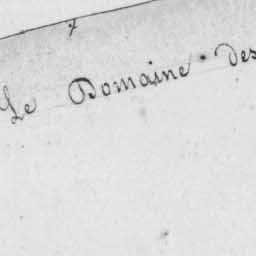 Le Domaine des